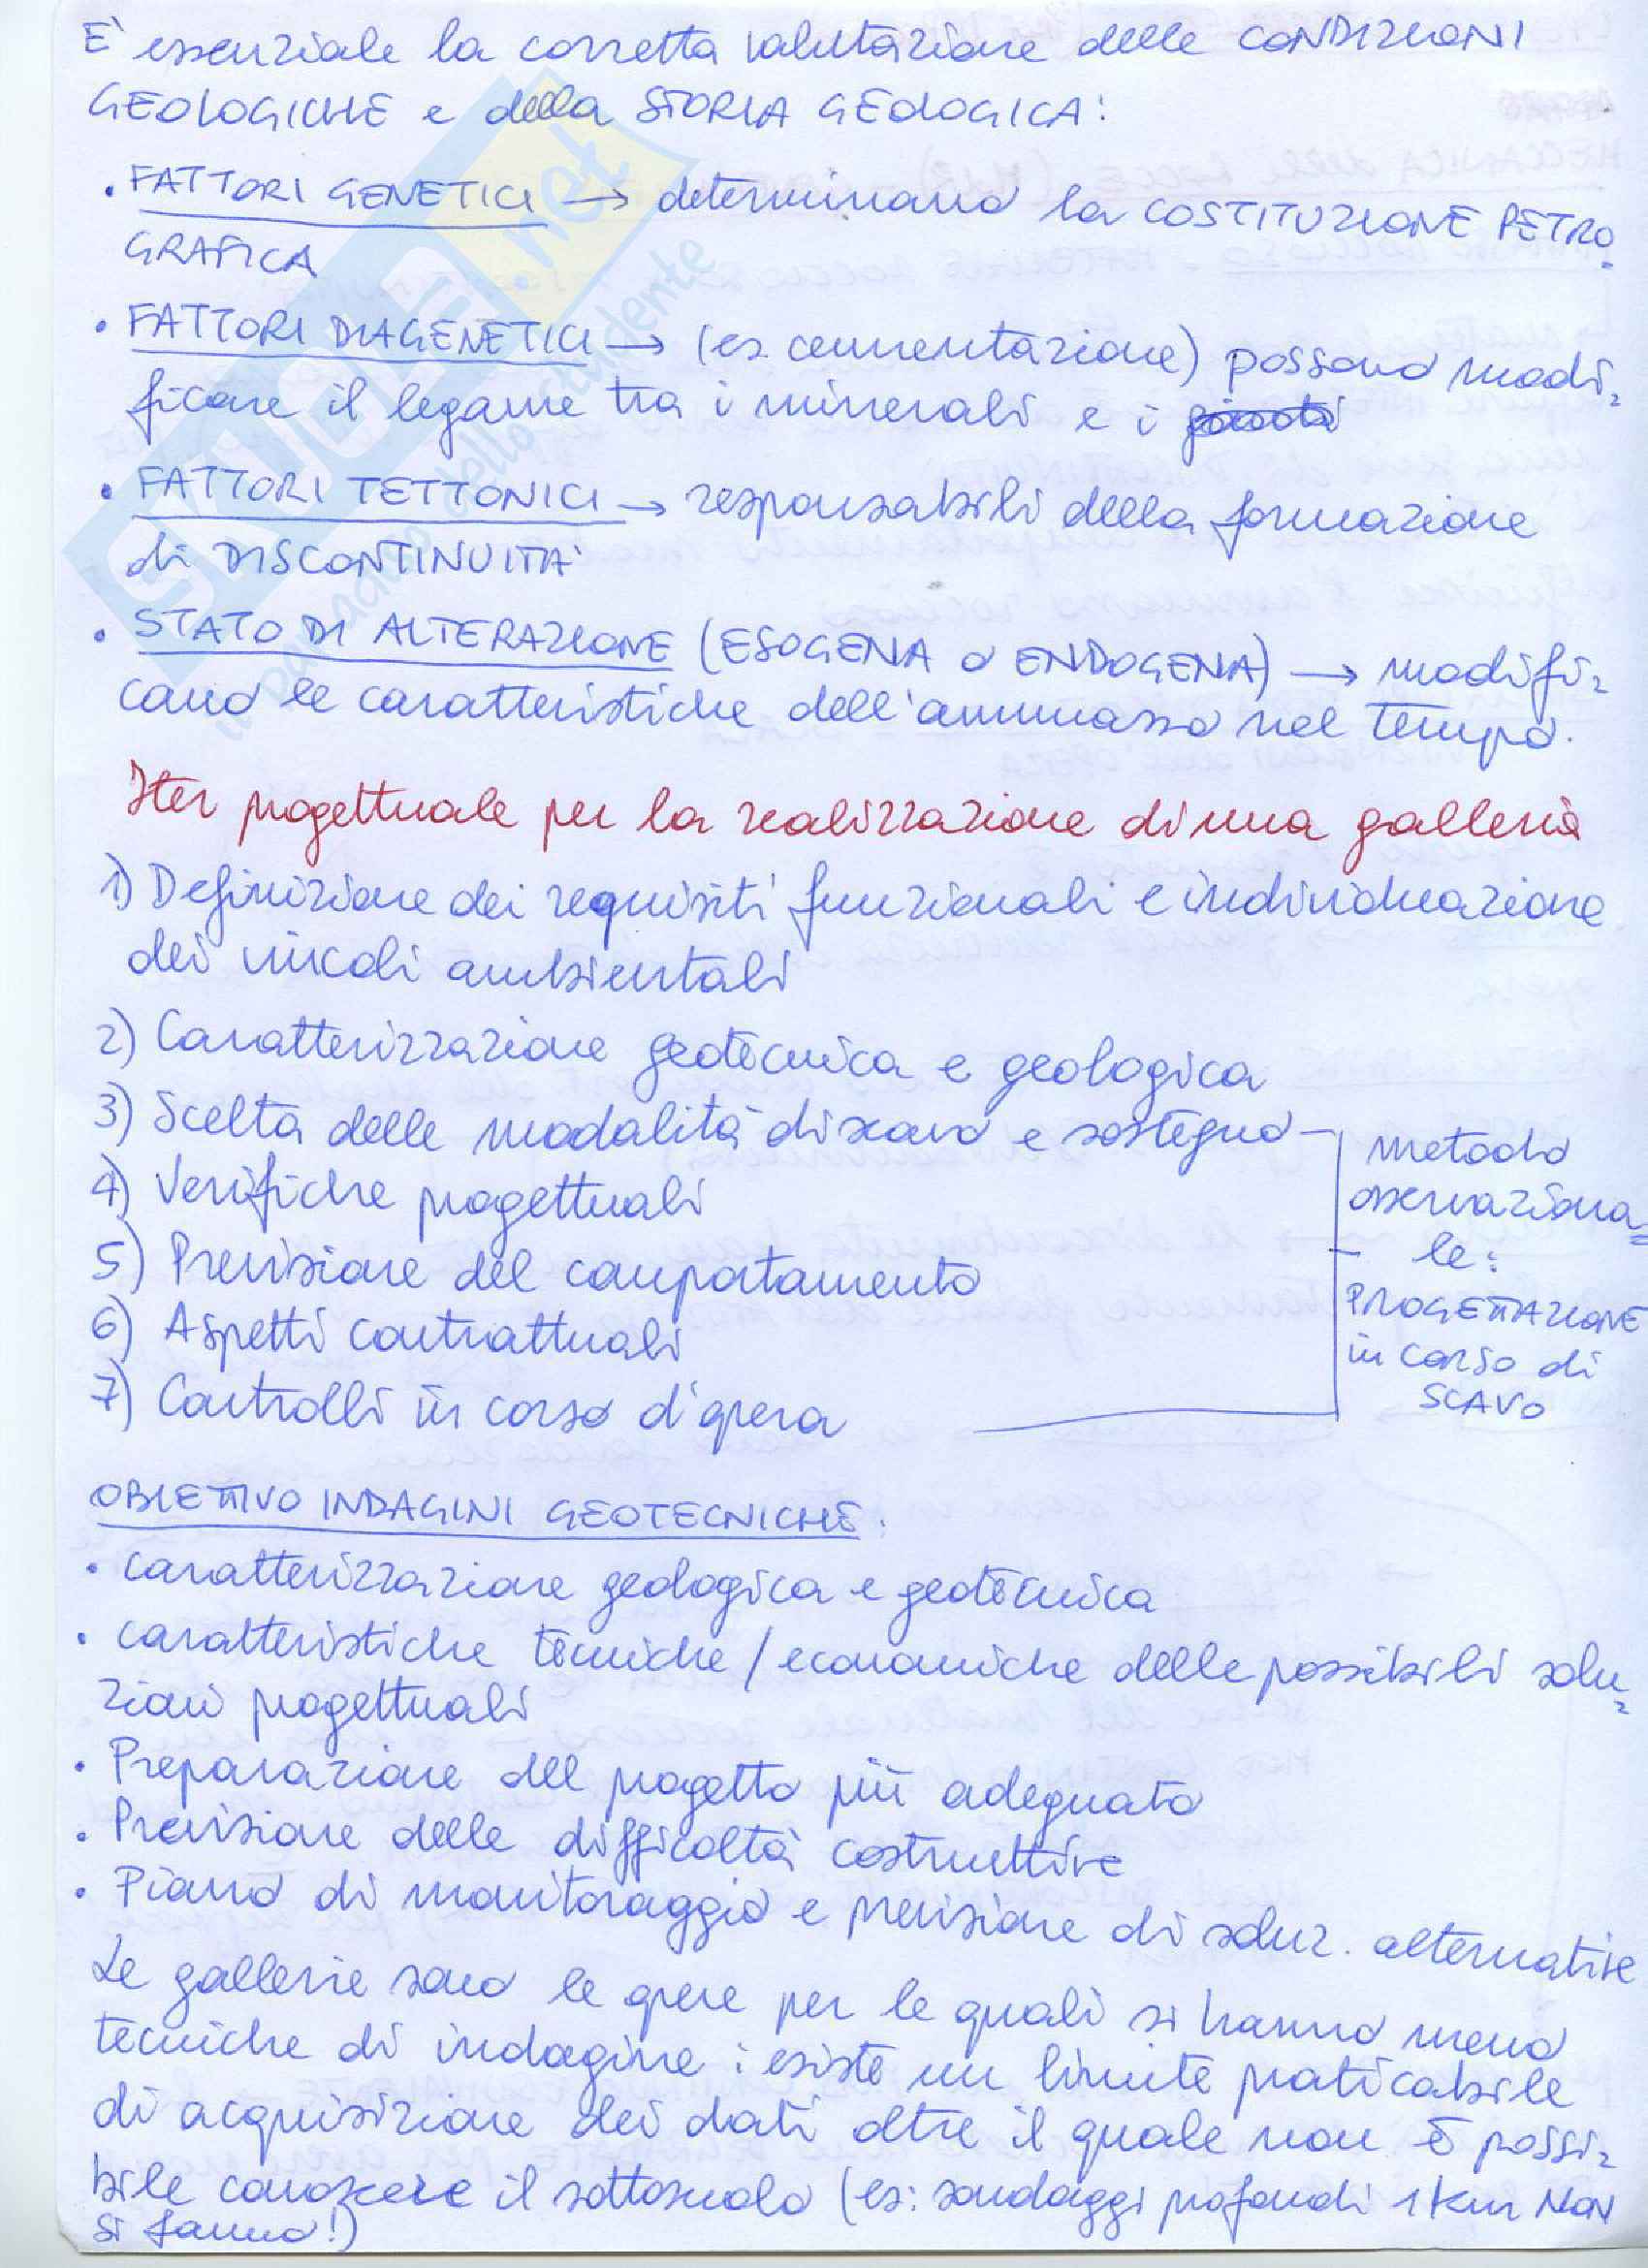 E' essenziale la corretta valutazione delle CONDIZIONI
GEOLOGICHE e della STORIA GEOLOGICA:
• FATTORI GENETICI → determinano la COSTITUZIONE PETRO
GRAFICA
• FATTORI DIAGENETICI → (es. cementazione) possono modi
ficare il legame tra i minerali e i
• FATTORI TETTONICI → responsabili della formazione
di DISCONTINUITA'
• STATO DI ALTERAZIONE (ESOGENA O ENDOGENA) → modifi
cano le caratteristiche dell'ammasso nel tempo.
Iter progettuale per la realizzazione di una galleria
1) Definizione dei requisiti funzionali e individuazione
dei vincoli ambientali
2) Caratterizzazione geotecnica e geologica
3) Scelta delle modalità di scavo e sostegno
4) Verifiche progettuali
5) Previsione del comportamento
6) Aspetti contrattuali
7) Controlli in corso d'opera
metodo
osservaziona
le:
PROGETTAZIONE
in corso di
SCAVO
OBIETTIVO INDAGINI GEOTECNICHE:
• caratterizzazione geologica e geotecnica
• caratteristiche tecniche / economiche delle possibili solu
zioni progettuali
• Preparazione del progetto più adeguato
• Previsione delle difficoltà costruttive
• Piano di monitoraggio e previsione di soluz. alternative
Le gallerie sono le opere per le quali si hanno meno
tecniche di indagine: esiste un limite praticabile
di acquisizione dei dati oltre il quale non è possi
bile conoscere il sottosuolo (es: sondaggi profondi 1 km NON
si fanno!)
SKUOLA.net
il paradiso dello studente